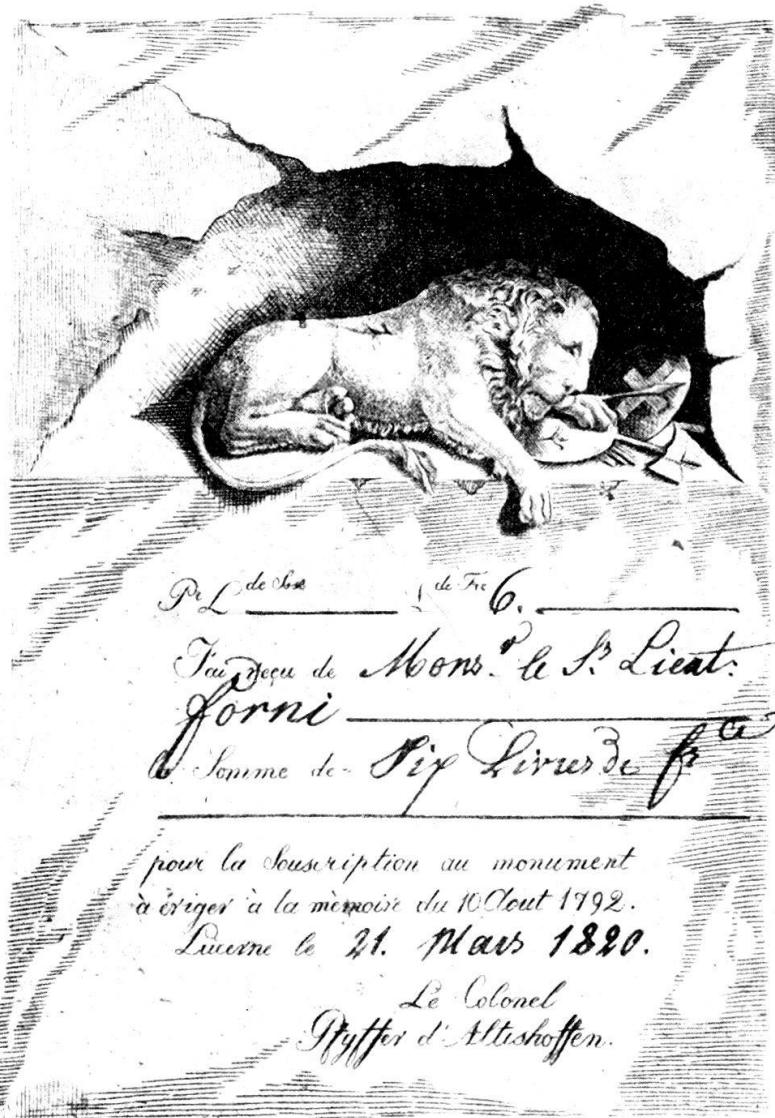 Pr L de Sse ___ L de Fre 6. ___
J'ai reçu de Monsr le Ss Lieut:
forni
la Somme de Six Livres de frce
pour la Souscription au monument
à ériger à la mémoire du 10 Aout 1792.
Lucerne le 21. Mars 1820.
Le Colonel
Pfyffer d'Altishoffen.